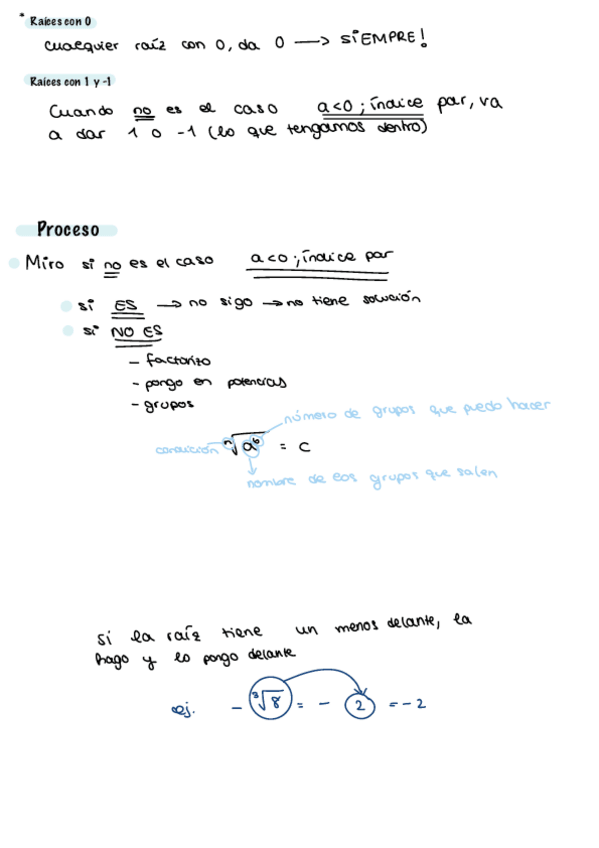 * Raíces con 0
cualquier raíz con 0, da 0 → SIEMPRE!
Raíces con 1 y -1
Cuando no es el caso a<0; índice par, va
a dar 1 o -1 (lo que tengamos dentro)
Proceso
Miro si no es el caso a<0; índice par
si ES → no sigo → no tiene solución
si NO ES
- factorizo
- pongo en potencias
- grupos
número de grupos que puedo hacer
condición ⁿ√aᵇ = c
nombre de los grupos que salen
si la raíz tiene un menos delante, la
hago y lo pongo delante
ej. - ³√8 = - 2 = -2